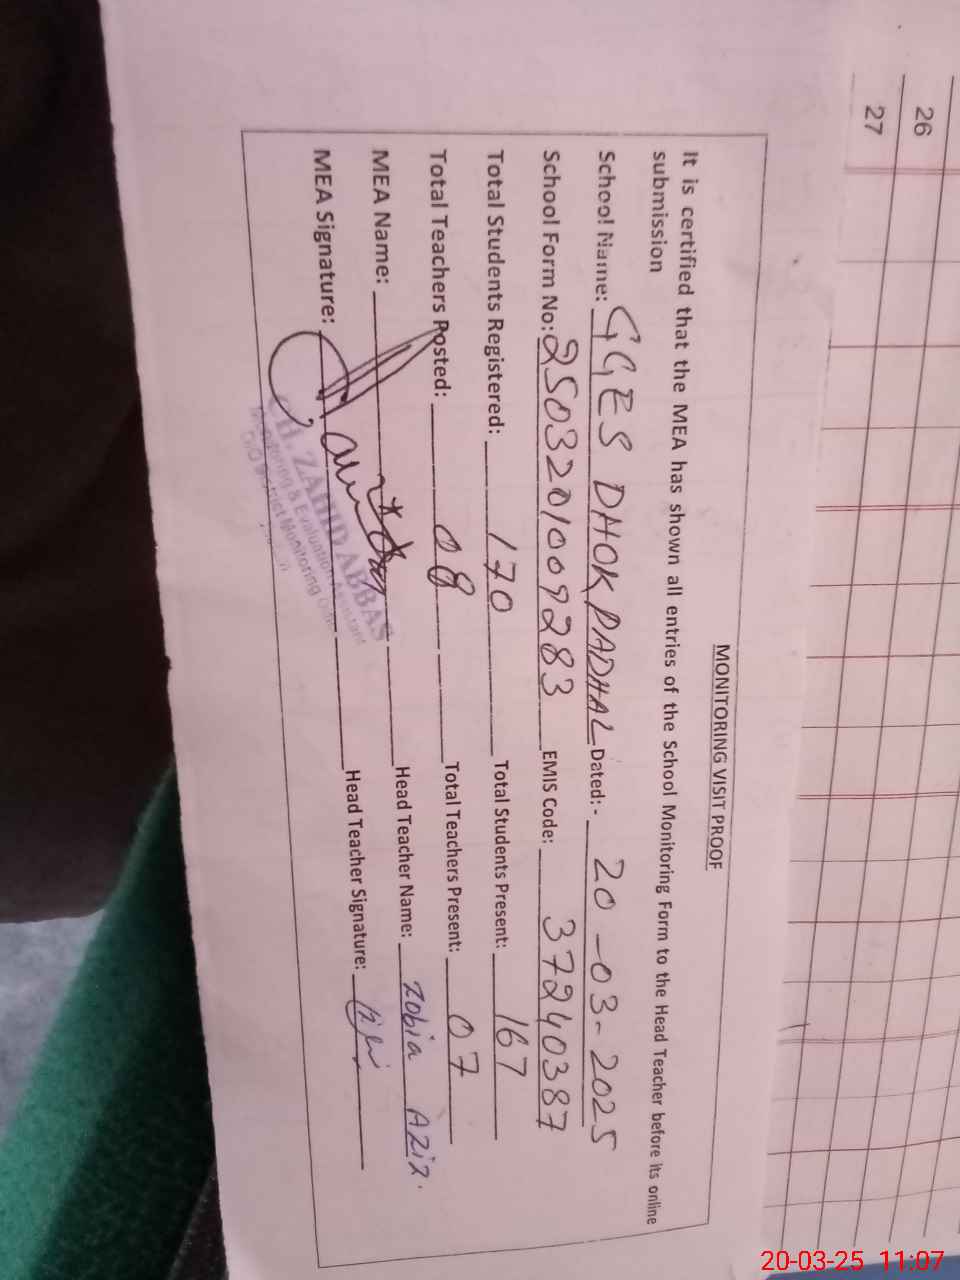 26
27
MONITORING VISIT PROOF
It is certified that the MEA has shown all entries of the School Monitoring Form to the Head Teacher before its online
submission
School Name: GGES DHOK PADHAL Dated:- 20-03-2025
School Form No: 2503201009283 EMIS Code: 37240387
Total Students Registered: 170 Total Students Present: 167
Total Teachers Posted: 08 Total Teachers Present: 07
MEA Name: Head Teacher Name: Zobia Aziz.
MEA Signature: Head Teacher Signature:
CH. ZAHID ABBAS
Monitoring & Evaluation Assistant
District Monitoring
20-03-25 11:07